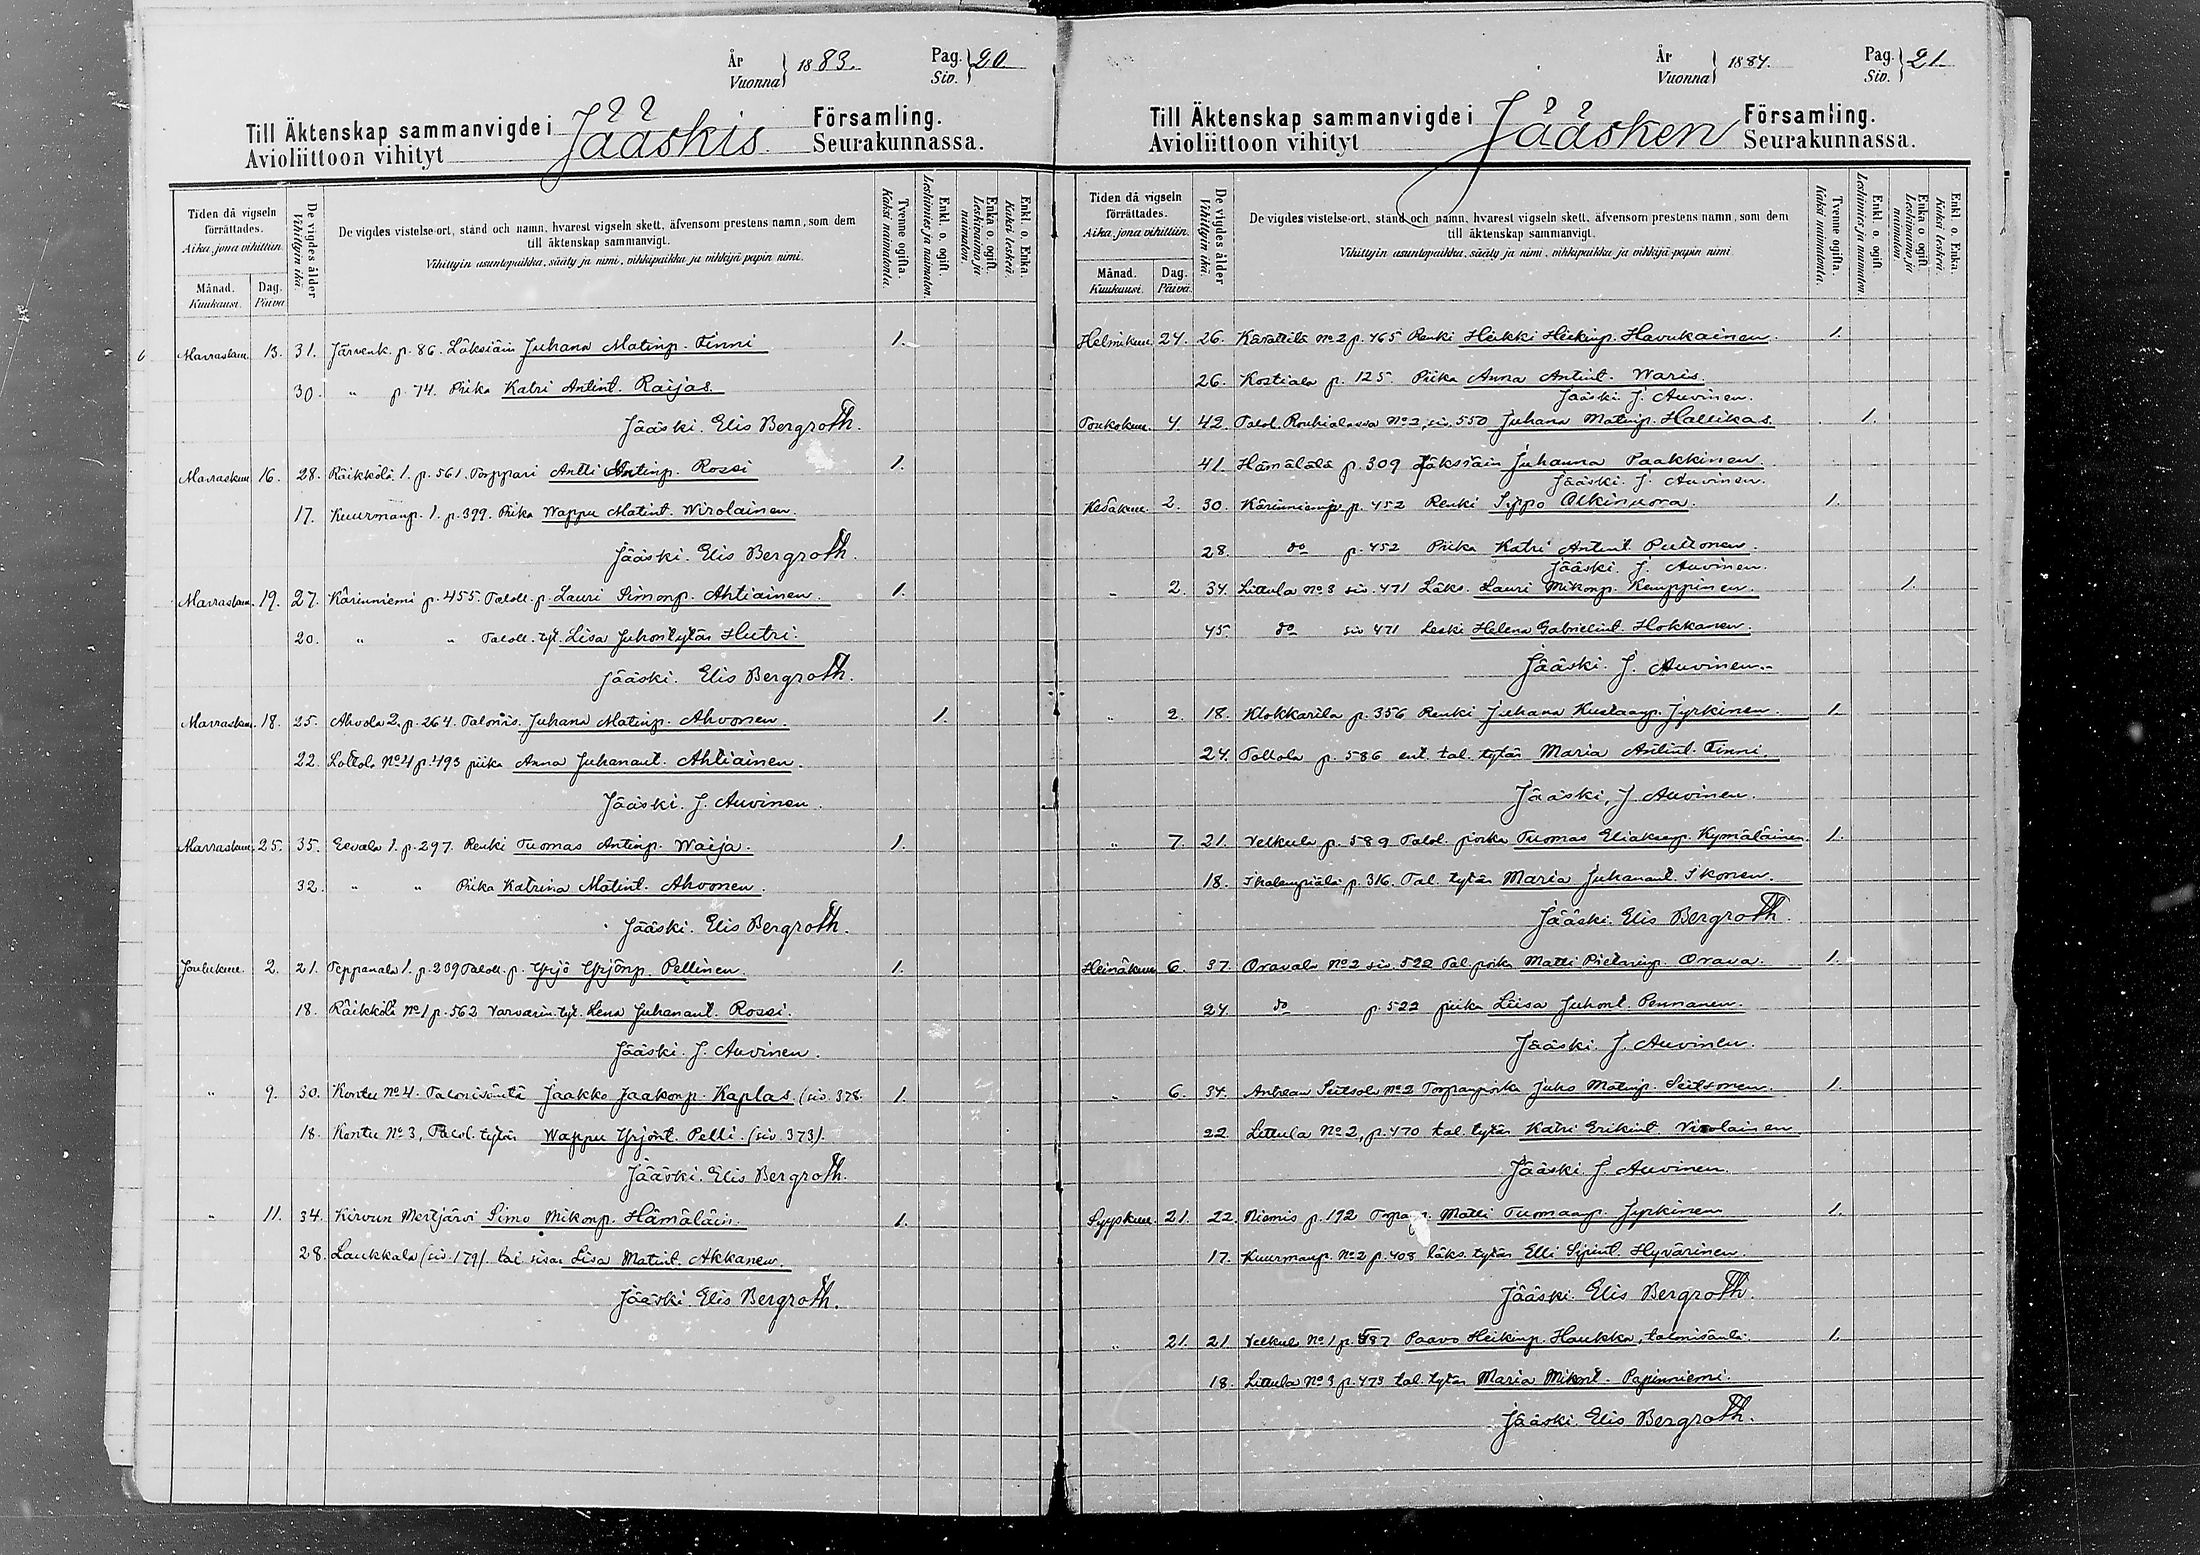 År
Vuonna } 1883. Pag.
Siv. } 20
Till Äktenskap sammanvigde i Jääskis Församling.
Avioliittoon vihityt Seurakunnassa.
Tiden då vigseln förrättades.
Aika, jona vihittiin.
Månad. Kuukausi.
Dag. Päivä.
De vigdes ålder
Vihittyin ikä.
De vigdes vistelse-ort, stånd och namn, hvarest vigseln skett, äfvensom prestens namn, som dem
till äktenskap sammanvigt.
Vihittyin asuntopaikka, sääty ja nimi, vihkipaikka ja vihkijä-papin nimi.
Tvenne ogifta.
Kaksi naimatonta.
Enkl. o. ogift.
Leskimies ja naimaton.
Enka o ogift.
Leskivaimo ja naimaton.
Enkl. o. Enka.
Kaksi leskeä.
Marraskuu 13. 31. Järvenk. p. 86. Läksiäin Juhana Matinp. Finni 1.
30. " p. 74. Piika Katri Antint. Raijas.
Jääski. Elis Bergroth.
Marraskuu 16. 28. Räikkölä. 1. p. 561. Torppari Antti Antinp. Rossi 1.
17. Kuurmanp. 1. p. 399. Piika Wappu Matint. Wirolainen.
Jääski. Elis Bergroth.
Marraskuu. 19. 27. Kärinniemi p. 455. Taloll. p. Lauri Simonp. Ahtiainen. 1.
20. " " Taloll. tyt. Lisa Juhontytär Hutri.
Jääski. Elis Bergroth.
Marraskuu. 18. 25. Ahvola 2. p. 264. Talonis. Juhana Matinp. Ahvonen. 1.
22. Lottola No 4 p. 493 piika Anna Juhanant. Ahtiainen.
Jääski. J. Auvinen.
Marraskuu. 25. 35. Eevala 1. p. 297. Renki Tuomas Antinp. Waija. 1.
32. " " Piika Katrina Matint. Ahvonen.
Jääski. Elis Bergroth.
Joulukuu. 2. 21. Teppanala 1. p. 239 Taloll. p. Yrjö Yrjönp. Pellinen. 1.
18. Räikkölä No 1 p. 562 Varvarin. tyt. Lena Juhanant. Rossi.
Jääski. J. Auvinen.
" 9. 30. Kontu No 4. Talonisäntä Jaakko Jaakonp. Kaplas. (siv. 378. 1.
18. Kontu No 3, Talol. tytär Wappu Yrjönt. Pelli. (siv. 373).
Jääski. Elis Bergroth.
" 11. 34. Kirvun Mertjärvi Simo Mikonp. Hämäläin. 1.
28. Laukkala (siv. 179). tal. sisar Lisa Matint. Akkanen.
Jääski. Elis Bergroth.
År
Vuonna } 1884. Pag.
Siv. } 21.
Till Äktenskap sammanvigde i Jääsken Församling.
Avioliittoon vihityt Seurakunnassa.
Tiden då vigseln förrättades.
Aika, jona vihittiin.
Månad. Kuukausi.
Dag. Päivä.
De vigdes ålder
Vihittyin ikä.
De vigdes vistelse-ort, stånd och namn, hvarest vigseln skett, äfvensom prestens namn, som dem
till äktenskap sammanvigt.
Vihittyin asuntopaikka, sääty ja nimi, vihkipaikka ja vihkijä-papin nimi
Tvenne ogifta.
Kaksi naimatonta.
Enkl. o. ogift.
Leskimies ja naimaton.
Enka o ogift.
Leskivaimo ja naimaton.
Enkl o. Enka.
Kaksi leskeä.
Helmikuu. 24. 26. Kärättilä No 2 p. 465 Renki Heikki Heikinp. Havukainen. 1.
26. Kostiala p. 125. Piika Anna Antint. Waris.
Jääski. J. Auvinen.
Toukokuu. 4. 42. Talol. Rouhialassa No 2, siv. 550 Juhana Matinp. Hallikas. 1.
41. Hämälälä p. 309 Läksiäin Juhanna Paakkinen.
Jääski. J. Auvinen.
Kesäkuu. 2. 30. Kärinniemi p. 452 Renki Sippo Olkinuora. 1.
28. do p. 452 Piika Katri Antint. Puttonen.
Jääski. J. Auvinen.
" 2. 34. Littula No 3 siv. 471 Läks. Lauri Mikonp. Kemppinen. 1.
45 do siv 471 Leski Helena Gabrielint. Hokkanen.
Jääski. J. Auvinen.
" 2. 18. Klokkarila p. 356 Renki Juhana Kustaanp. Jyrkinen. 1.
24. Tollola p. 586 ent. tal. tytär Maria Antint. Finni.
Jääski, J. Auvinen.
" 7. 21. Velkula p. 589 Talol. poika Tuomas Eliaksenp. Kymäläinen 1.
18. p. 316. Tal. tytär Maria Juhanant. Ikonen.
Jääski. Elis Bergroth.
Heinäkuu 6. 37. Oravala No 2 siv. 522 Tal. poika Matti Pietarinp. Orava. 1.
24. do p. 522 piika Liisa Juhont. Pennanen.
Jääski. J. Auvinen.
" 6. 34. Antrean Seitsola No 2 Torpanpoika Juho Matinp. Seitsonen. 1.
22. Littula No 2, p. 470 tal. tytär Katri Erikint. Virolainen
Jääski. J. Auvinen.
Syyskuu. 21. 22. Niemis p. 192 Matti Tuomaanp. Jyrkinen 1.
17. Kuurmanp. No 2 p. 408 läks. tytär Elli Sipint. Hyvärinen.
Jääski. Elis Bergroth.
" 21. 21. Velkula No 1 p. 587 Paavo Heikinp. Haukka, talonisäntä. 1.
18. Littula No 3 p. 473 tal. tytär Maria Mikont. Papinniemi.
Jääski. Elis Bergroth.